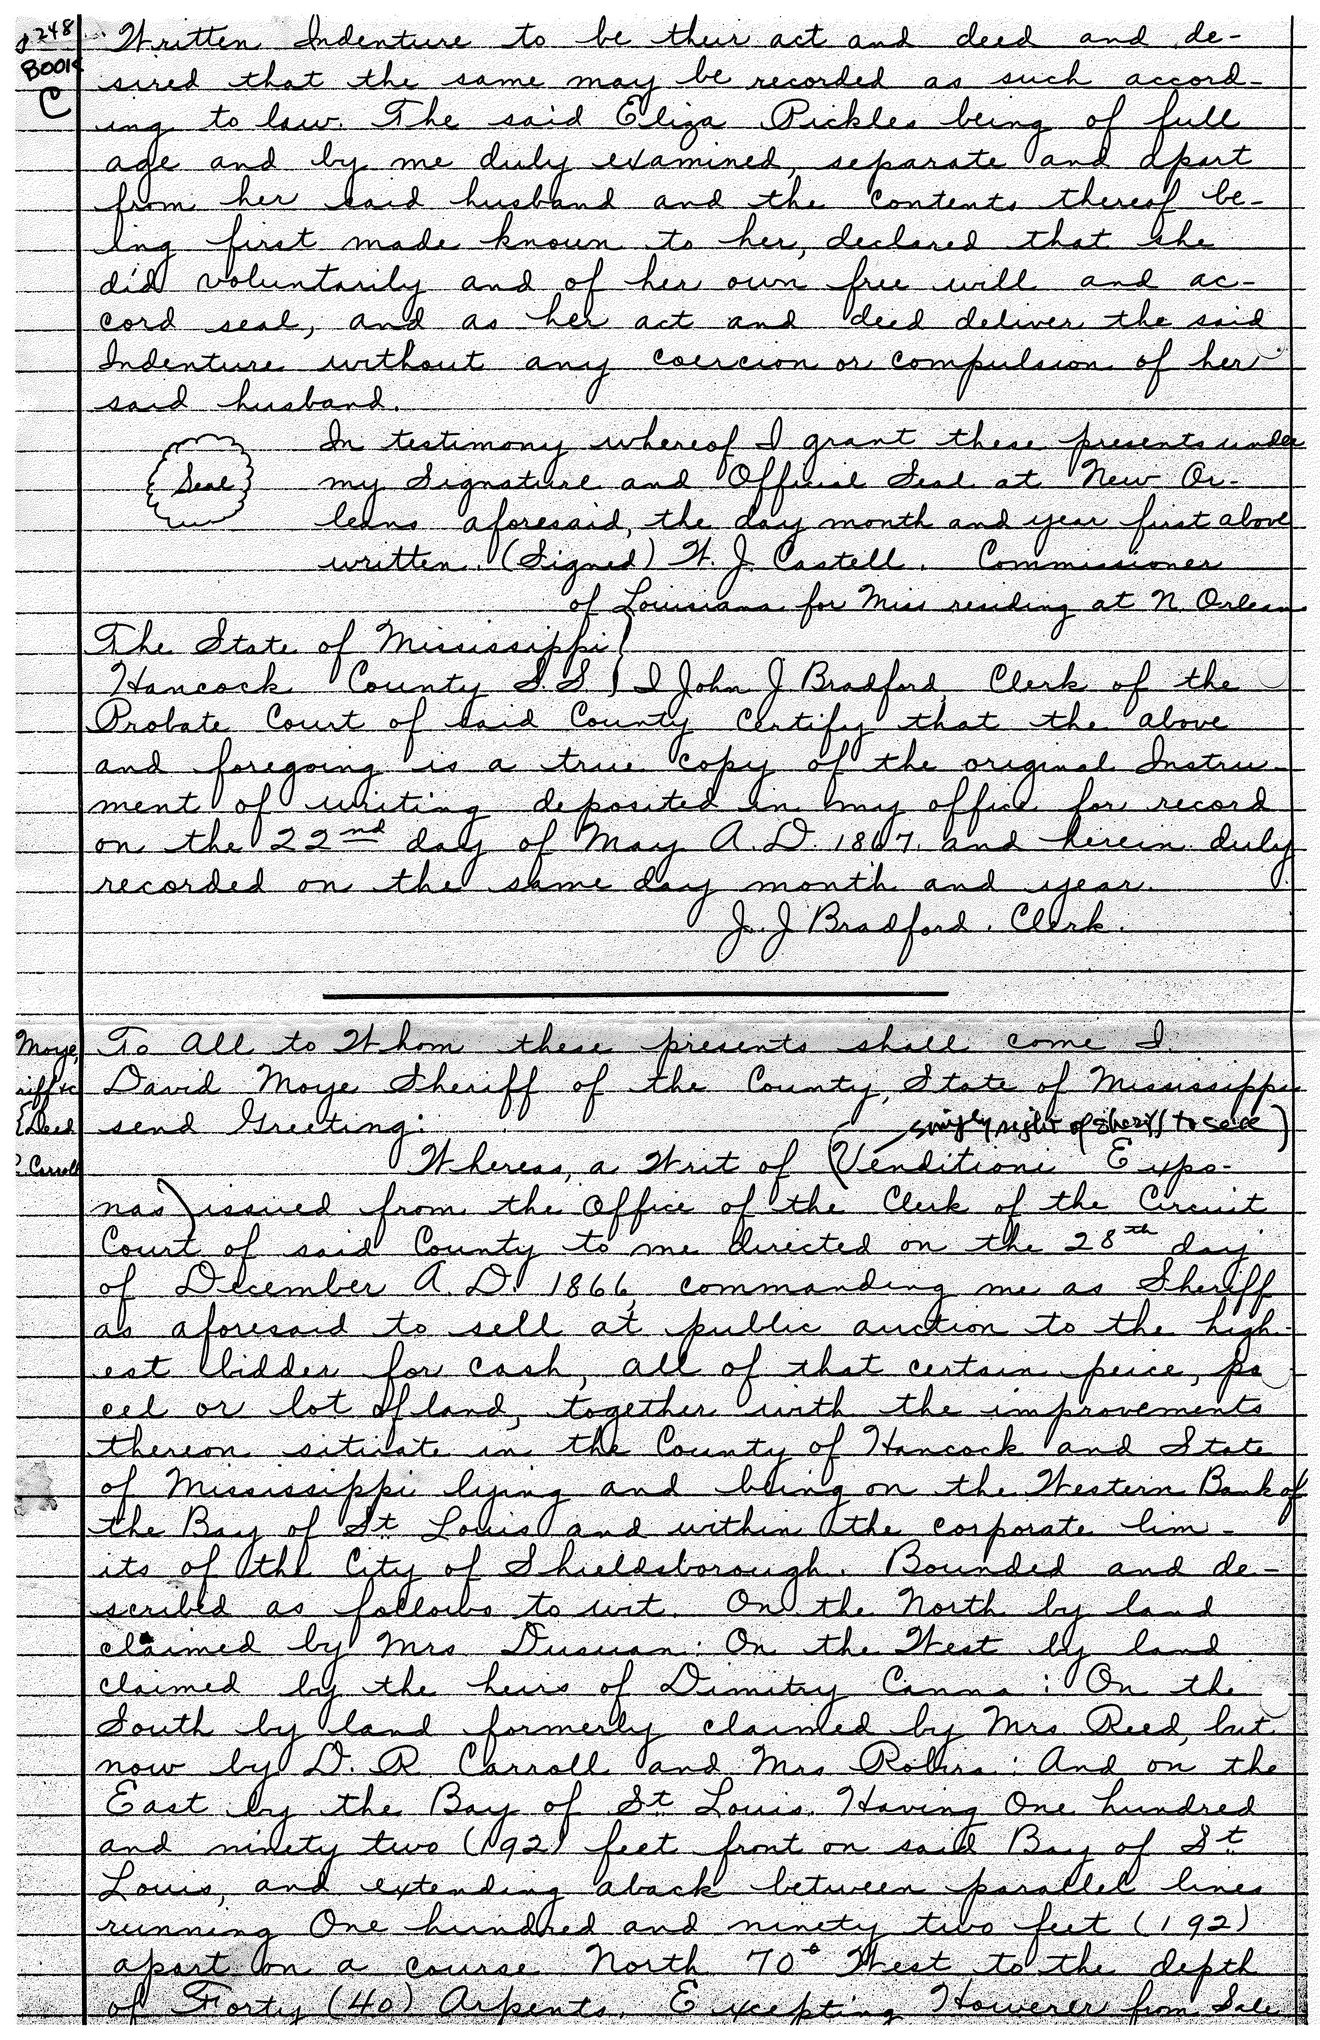 p. 248
BOOK
C
Written Indenture to be their act and deed and de-
sired that the same may be recorded as such accord-
ing to law. The said Eliza Pickles being of full
age and by me duly examined, separate and apart
from her said husband and the contents thereof be-
ing first made known to her, declared that she
did voluntarily and of her own free will and ac-
cord seal, and as her act and deed deliver the said
Indenture without any coercion or compulsion of her
said husband.
Seal
In testimony whereof I grant these presents under
my Signature and Official Seal at New Or-
leans aforesaid, the day month and year first above
written. (Signed) W. J. Castell. Commissioner
of Louisiana for Miss residing at N. Orleans
The State of Mississippi }
Hancock County S.S } I John J Bradford, Clerk of the
Probate Court of said County Certify that the above
and foregoing is a true copy of the original Instru-
ment of writing deposited in my office for record
on the 22nd day of May A.D. 1867. and herein duly
recorded on the same day month and year.
J. J Bradford. Clerk.
Moye,
riff &c
{Deed
Carroll
To All to Whom these presents shall come I.
David Moye Sheriff of the County, State of Mississippi
send Greeting:
simply right of sheriff to seize)
Whereas, a Writ of (Venditioni Expo-
nas) issued from the Office of the Clerk of the Circuit
Court of said County to me directed on the 28th day
of December A. D. 1866, commanding me as Sheriff
as aforesaid to sell at public auction to the high-
est bidder for cash, all of that certain peice, pa
cel or lot of land, together with the improvements
thereon situate in the County of Hancock and State
of Mississippi lying and being on the Western Bank of
the Bay of St. Louis and within the corporate lim-
its of the City of Shieldsborough. Bounded and de-
scribed as follows to wit. On the North by land
claimed by Mrs Dusuan: On the West by land
claimed by the heirs of Dimitry Canna: On the
South by land formerly claimed by Mrs. Reed, but
now by D. R. Carroll and Mrs : And on the
East by the Bay of St. Louis. Having One hundred
and ninety two (192) feet front on said Bay of St.
Louis, and extending aback between parallel lines
running One hundred and ninety two feet (192)
apart on a course North 70° West to the depth
of Forty (40) Arpents. Excepting However from Sale